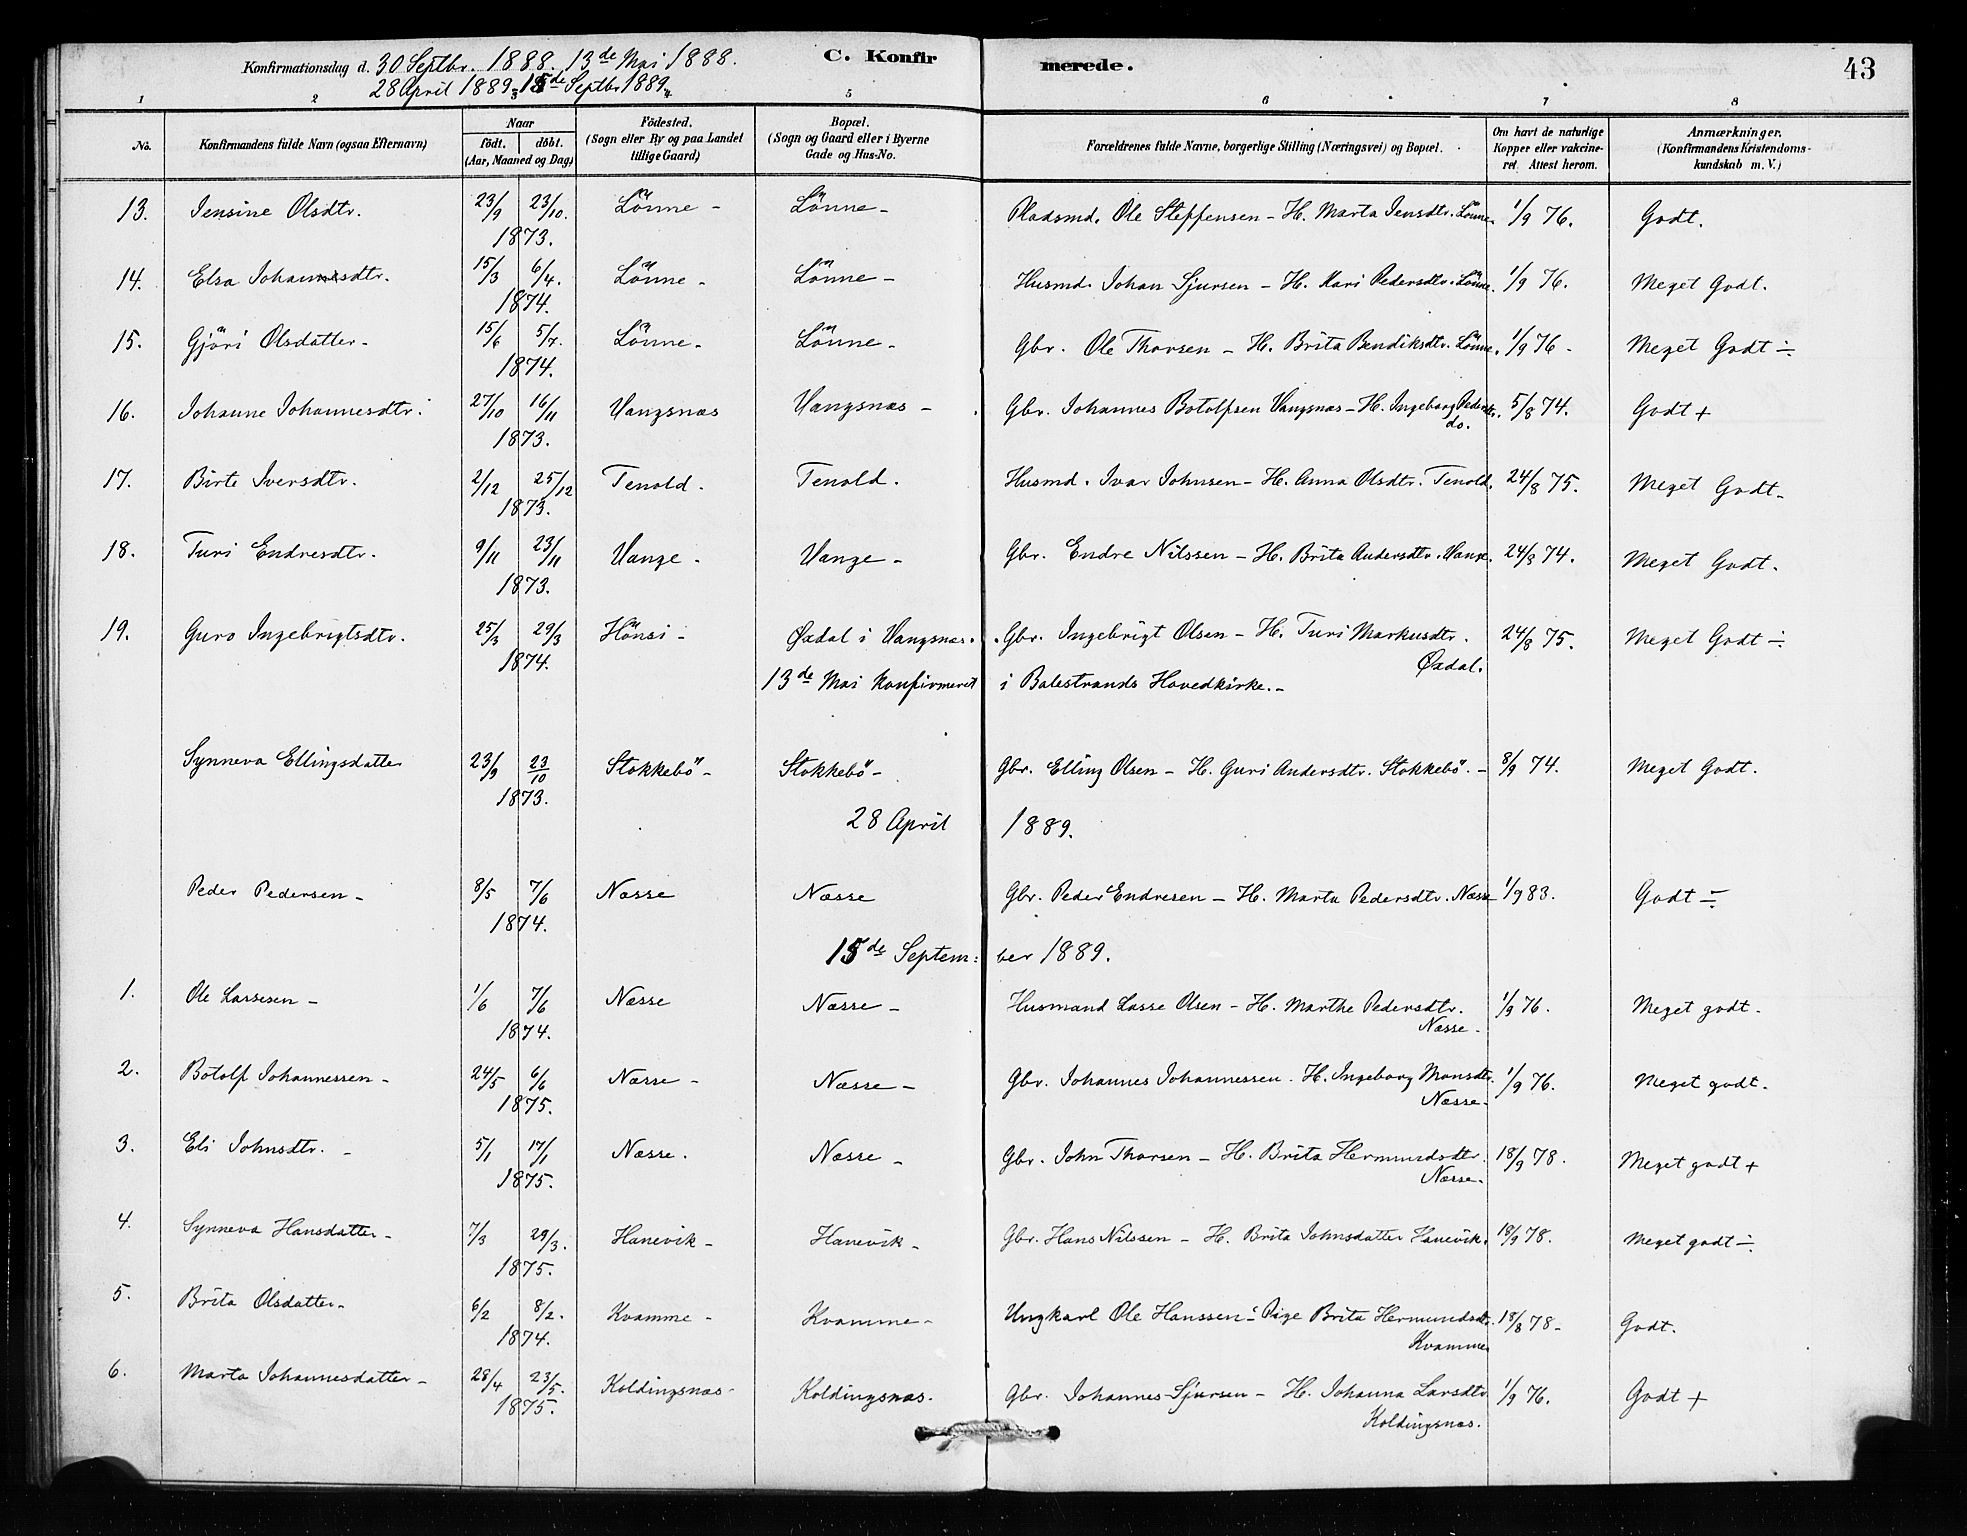 Konfirmationsdag d. 30 Septbr. 1888. 13de Mai 1888. C. Konfirmerede. 43
28 April 1889. 15de Septbr 1889.
1 2 3 4 5 6 7 8
No. Konfirmandens fulde Navn (ogsaa Efternavn) Naar födt. döbt. (Aar, Maaned og Dag) Födested. (Sogn eller By og paa Landet tillige Gaard) Bopæl. (Sogn og Gaard eller i Byerne Gade og Hus-No. Forældrenes fulde Navne, borgerlige Stilling (Næringsvei) og Bopæl. Om havt de naturlige Kopper eller vakcineret. Attest herom. Anmærkninger. (Konfirmandens Kristendomskundskab m. V.)
13. Jensine Olsdtr. 23/9 23/10. Lönne - Lönne - Pladsmd. Ole Steffensen - H. Marta Jensdtr. Lönne. 1/9 76. Godt.
1873.
14. Elsa Johannesdtr. 15/3 6/4. Lönne - Lönne - Husmd. Johan Sjursen - H. Kari Pedersdtr. Lönne. 1/9 76. Meget Godt.
1874.
15. Gjöri Olsdatter - 15/6 5/7. Lönne - Lönne - Gbr. Ole Thorsen - H. Brita Bendiksdtr. Lönne. 1/9 76 - Meget Godt ÷
1874.
16. Johanne Johannesdtr. 27/10 16/11 Vangsnæs Vangsnæs - Gbr. Johannes Botolfsen Vangsnæs - H. Ingeborg Pedersdtr. 5/8 74. Godt +
1873. do.
17. Birte Iversdtr. 2/12 25/12 Tenold. Tenold. Husmd. Ivar Johnsen - H. Anna Olsdtr. Tenold. 24/8 75. Meget Godt -
1873.
18. Turi Endresdtr. 9/11 23/11 Vange - Vange - Gbr. Endre Nilssen - H. Brita Andersdtr. Vange. 24/8 74. Meget Godt.
1873.
19. Guro Ingebrigtsdtr. 25/3 29/3 Hönsi - Øxdal i Vangsnæs. Gbr. Ingebrigt Olsen - H. Turi Markusdtr. 24/8 75. Meget Godt ÷
1874. Øxdal.
13de Mai Konfirmeret i Balestrands Hovedkirke. -
Synneva Ellingsdatter 23/9 23/10 Stokkebö - Stokkebö - Gbr. Elling Olsen - H. Guri Andersdtr. Stokkebö. - 8/9 74. Meget Godt.
1873.
28 April 1889.
Peder Pedersen - 8/5 7/6 Næsse Næsse Gbr. Peder Endresen - H. Marta Pedersdtr. Næsse 1/9 83. Godt ÷
1874.
15de September 1889.
1. Ole Lassesen - 1/6 7/6 Næsse Næsse - Husmand Lasse Olsen - H. Marthe Pedersdtr. 1/9 76. Meget godt -
1874. Næsse -
2. Botolf Johannessen - 24/5 6/6 Næsse - Næsse - Gbr. Johannes Johannessen. H. Ingeborg Monsdtr. 1/9 76. Meget godt -
1875. Næsse -
3. Eli Johnsdtr. - 5/1 17/1 Næsse. Næsse - Gbr. John Thorsen - H. Brita Hermundsdtr. 18/9 78. Meget godt +
1875. Næsse -
4. Synneva Hansdatter - 7/3 29/3. Hanevik - Hanevik - Gbr. Hans Nilssen - H. Brita Johnsdatter Hanevik. 18/9 78. Meget godt ÷
1875.
5. Brita Olsdatter - 6/2 8/2. Kvamme - Kvamme - Ungkarl Ole Hanssen - Pige Brita Hermundsdtr. 18/8 78 - Godt.
1874. Kvamme
6. Marta Johannesdatter - 28/4 23/5. Koldingsnæs - Koldingsnæs. Gbr. Johannes Sjursen - H. Johanna Larsdtr 1/9 76. Godt +
1875. Koldingsnæs.